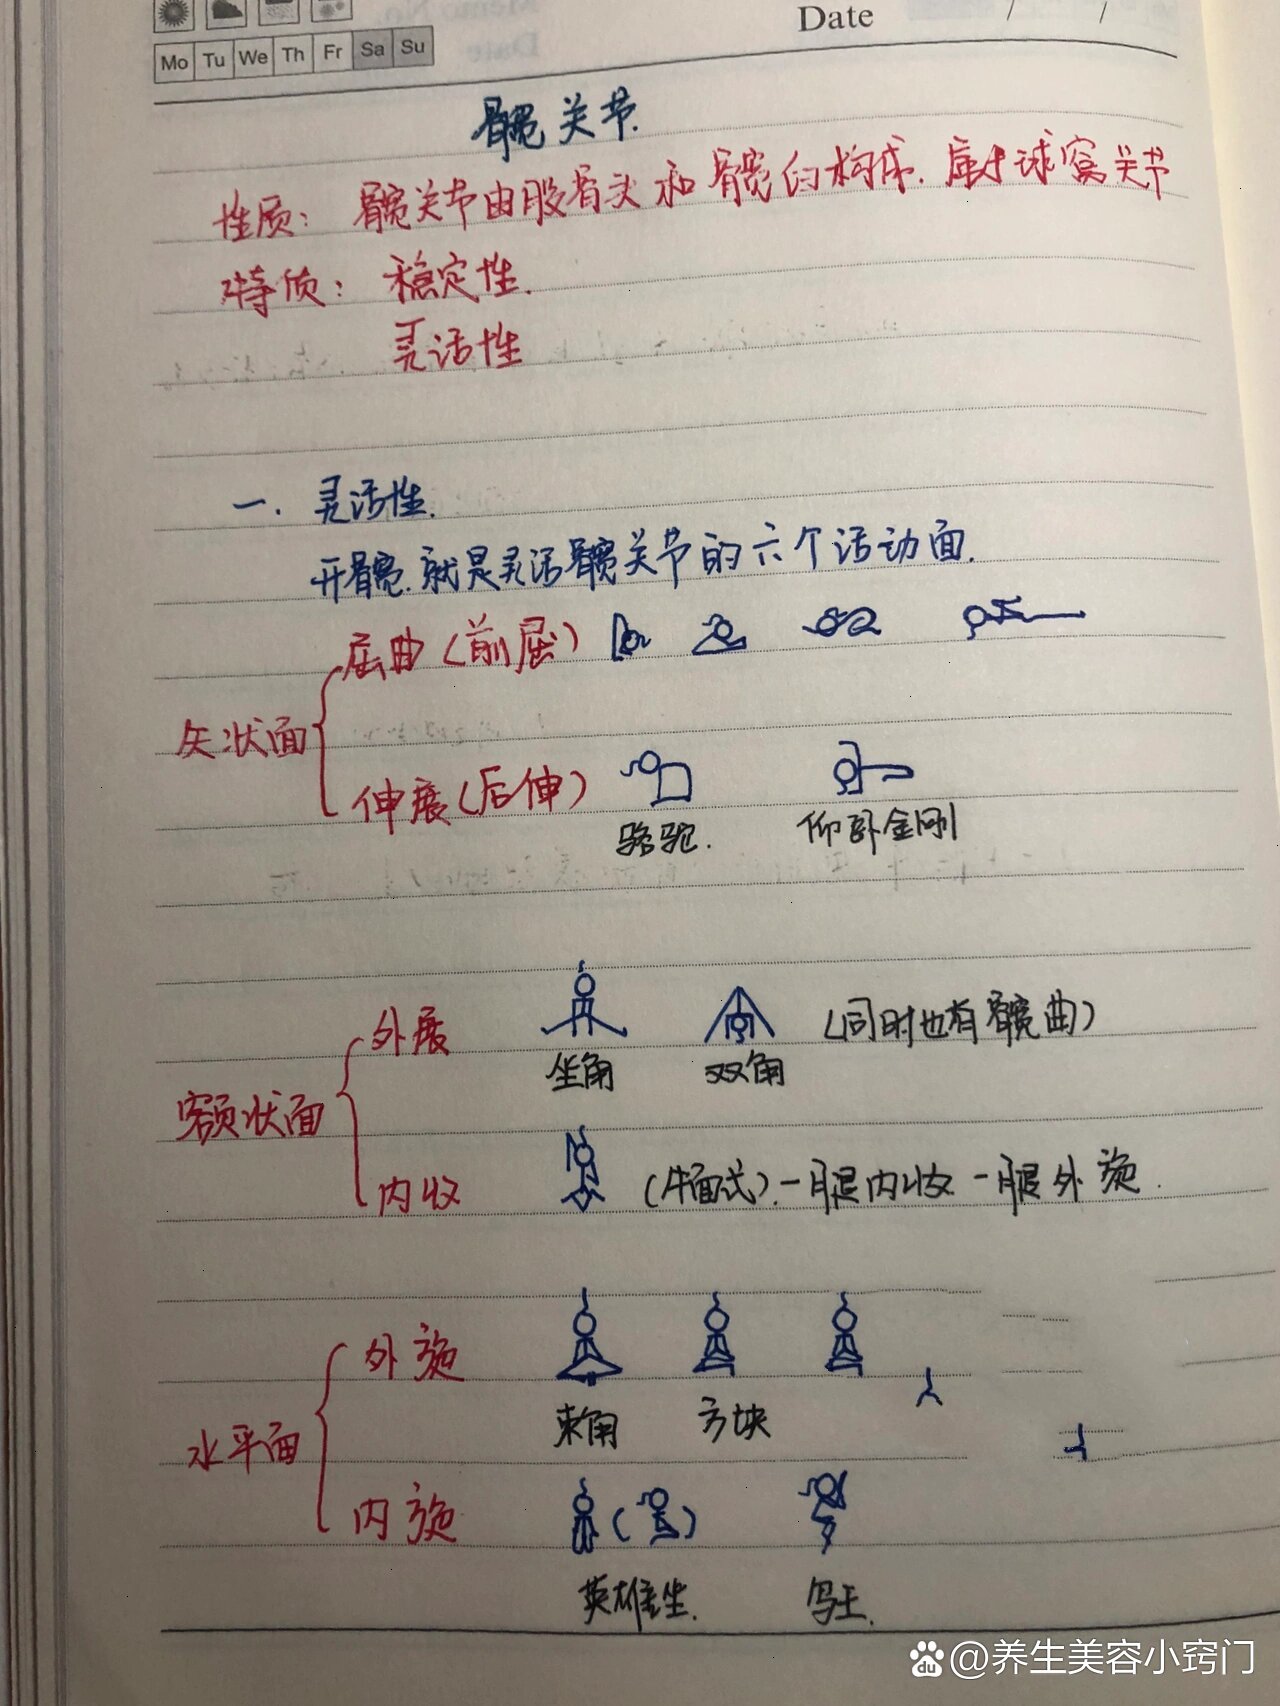 Date / /
Mo Tu We Th Fr Sa Su
髋关节.
性质: 髋关节由股骨头和髋臼构成. 属于球窝关节
特质: 稳定性.
灵活性
一. 灵活性.
开髋. 就是灵活髋关节的六个活动面.
屈曲(前屈)
矢状面
伸展(后伸)
骆驼. 仰卧金刚
外展 (同时也有髋曲)
坐角 双角
额状面
内收 (牛面式). 一腿内收 一腿外旋.
外旋
束角 方块
水平面
内旋 ( )
英雄坐. 鸟王.
du @养生美容小窍门